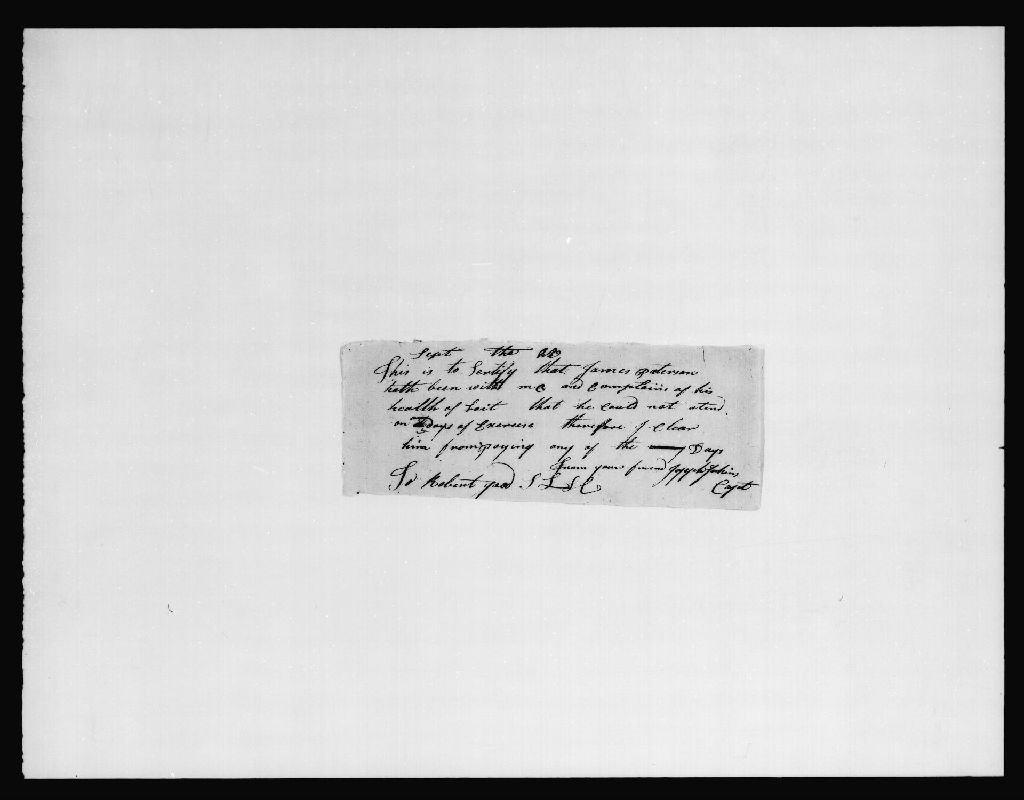 Sept the 22
This is to Sertify that James paterson
hath been with me and Complains of his
health of Lait that he Could not atend
on Days of Exersise therefore I Clear
him from paying any of the Days
from your friend Joseph
Capt
To Robert